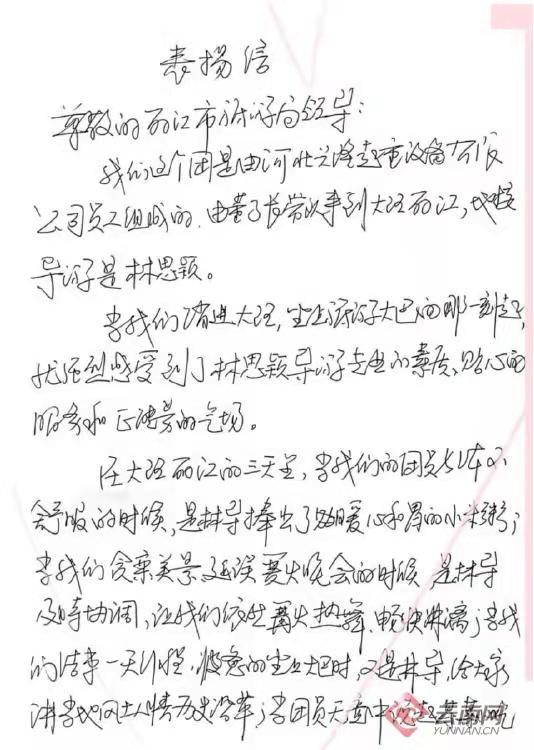 表扬信
尊敬的丽江市旅游局领导：
我们这个团是由河北兴隆起重设备有限
公司员工组成的，由董事长带队来到大理丽江，地接
导游是林思颖。
当我们踏进大理，坐上旅游大巴的那一刻起，
就强烈感受到了林思颖导游专业的素质、贴心的
服务和正能量的气场。
在大理丽江的三天里，当我们的团员身体不
舒服的时候，是林导捧出了碗暖心和胃的小米粥；
当我们贪恋美景延误篝火晚会的时候，是林导
及时协调，让我们依然篝火热舞、畅快淋漓；当我
们结束一天行程，疲惫的坐上大巴时，又是林导，给大家
讲当地风土人情历史沿革；当团员无意中说起
云南网
YUNNAN.CN